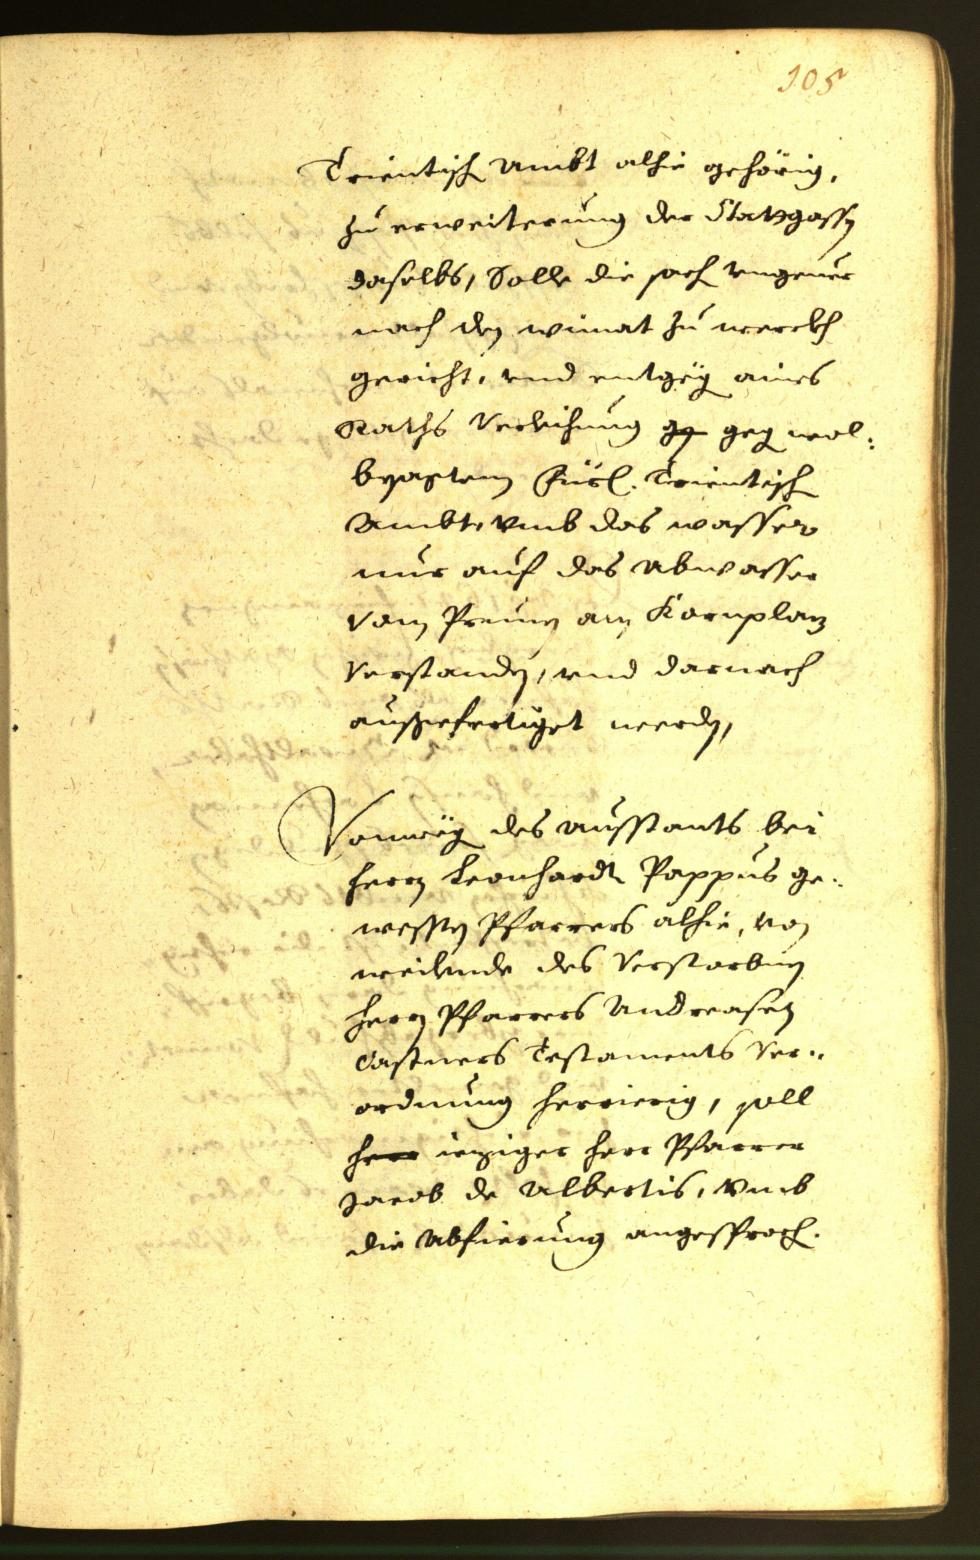 105
Trientisch Ambt alhie gehörig,
zu erweiterung der Stattgassen
daselbs, Solle die sach
nach dem wimat zu werckh
gericht, vnd entgegen aines
Raths Verleihung gegen wol=
besagtem Fürl. Trientisch
Ambt, vmb das wasser
nur auf das Abwasser
vom Prunen am Kornplatz
Verstanden, vnd darnach
aussgefertiget werden,
Vonwegen des Ausstants bei
herrn Leonhardt Pappus ge=
westen Pfarrers alhie, von
weilende des Verstorbnen
herrn Pfarrers Andreasen
Castners Testaments Ver=
ordnung herrierig, soll
herr ieziger herr Pfarrer
Jacob de Albertis, vmb
die Abfierung angesproch.